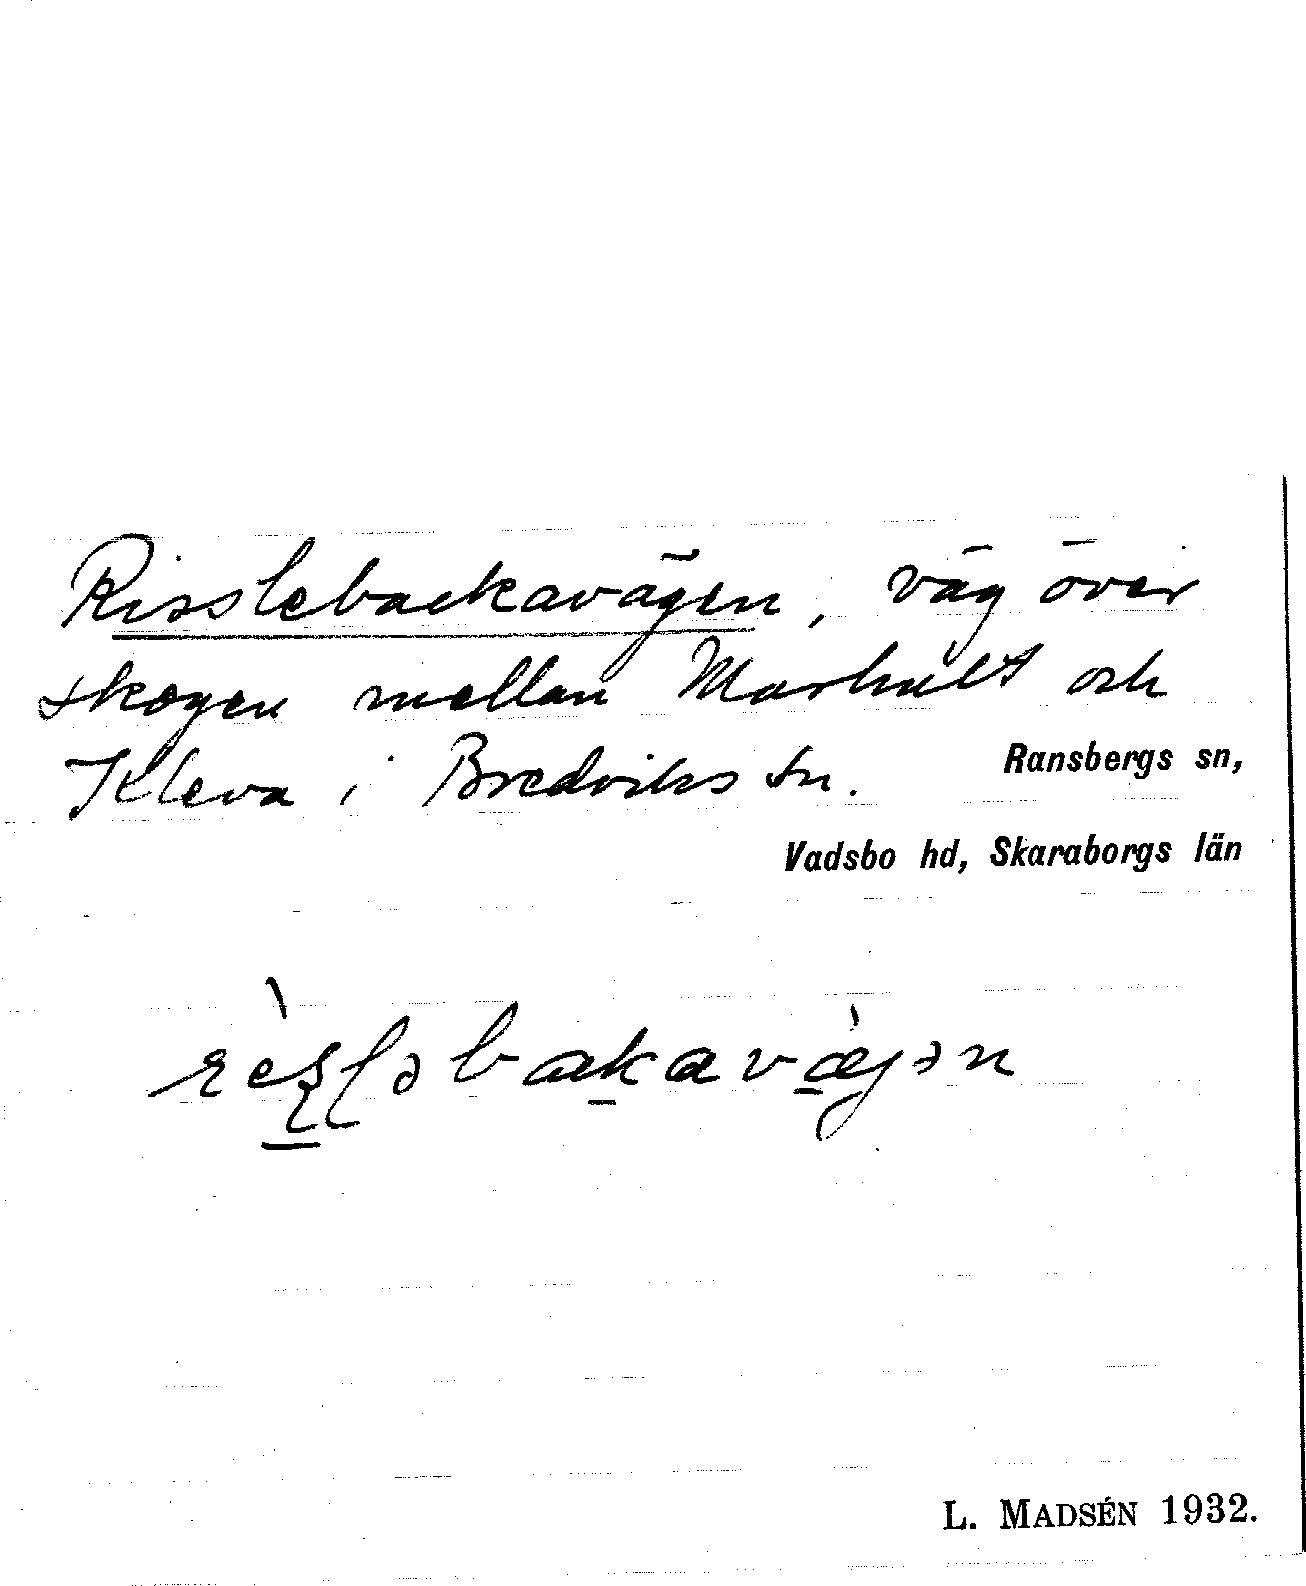 Risslebackavägen, väg över
skogen mellan Marhult och
Kleva i Bredviks sn.
Ransbergs sn,
Vadsbo hd, Skaraborgs län
L. MADSÉN 1932.